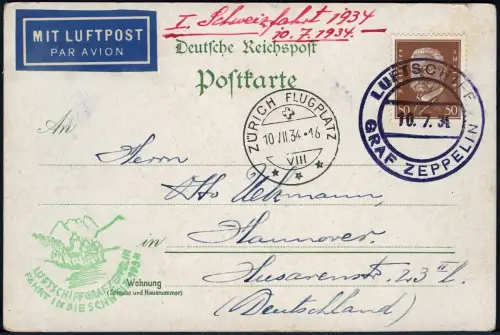 MIT LUFTPOST
PAR AVION
I. Schweizfahrt 1934
10.7.1934.
Deutsche Reichspost
Postkarte
50 50
LUFTSCHIFF
10.7.34
GRAF ZEPPELIN
ZÜRICH FLUGPLATZ
10.VII.34-16
VIII
An
Herrn
Otto
in Hannover
Husarenstr. 23 II.
(Deutschland)
Wohnung
(Straße und Hausnummer)
LUFTSCHIFF GRAF ZEPPELIN
FAHRT IN DIE SCHWEIZ 1934